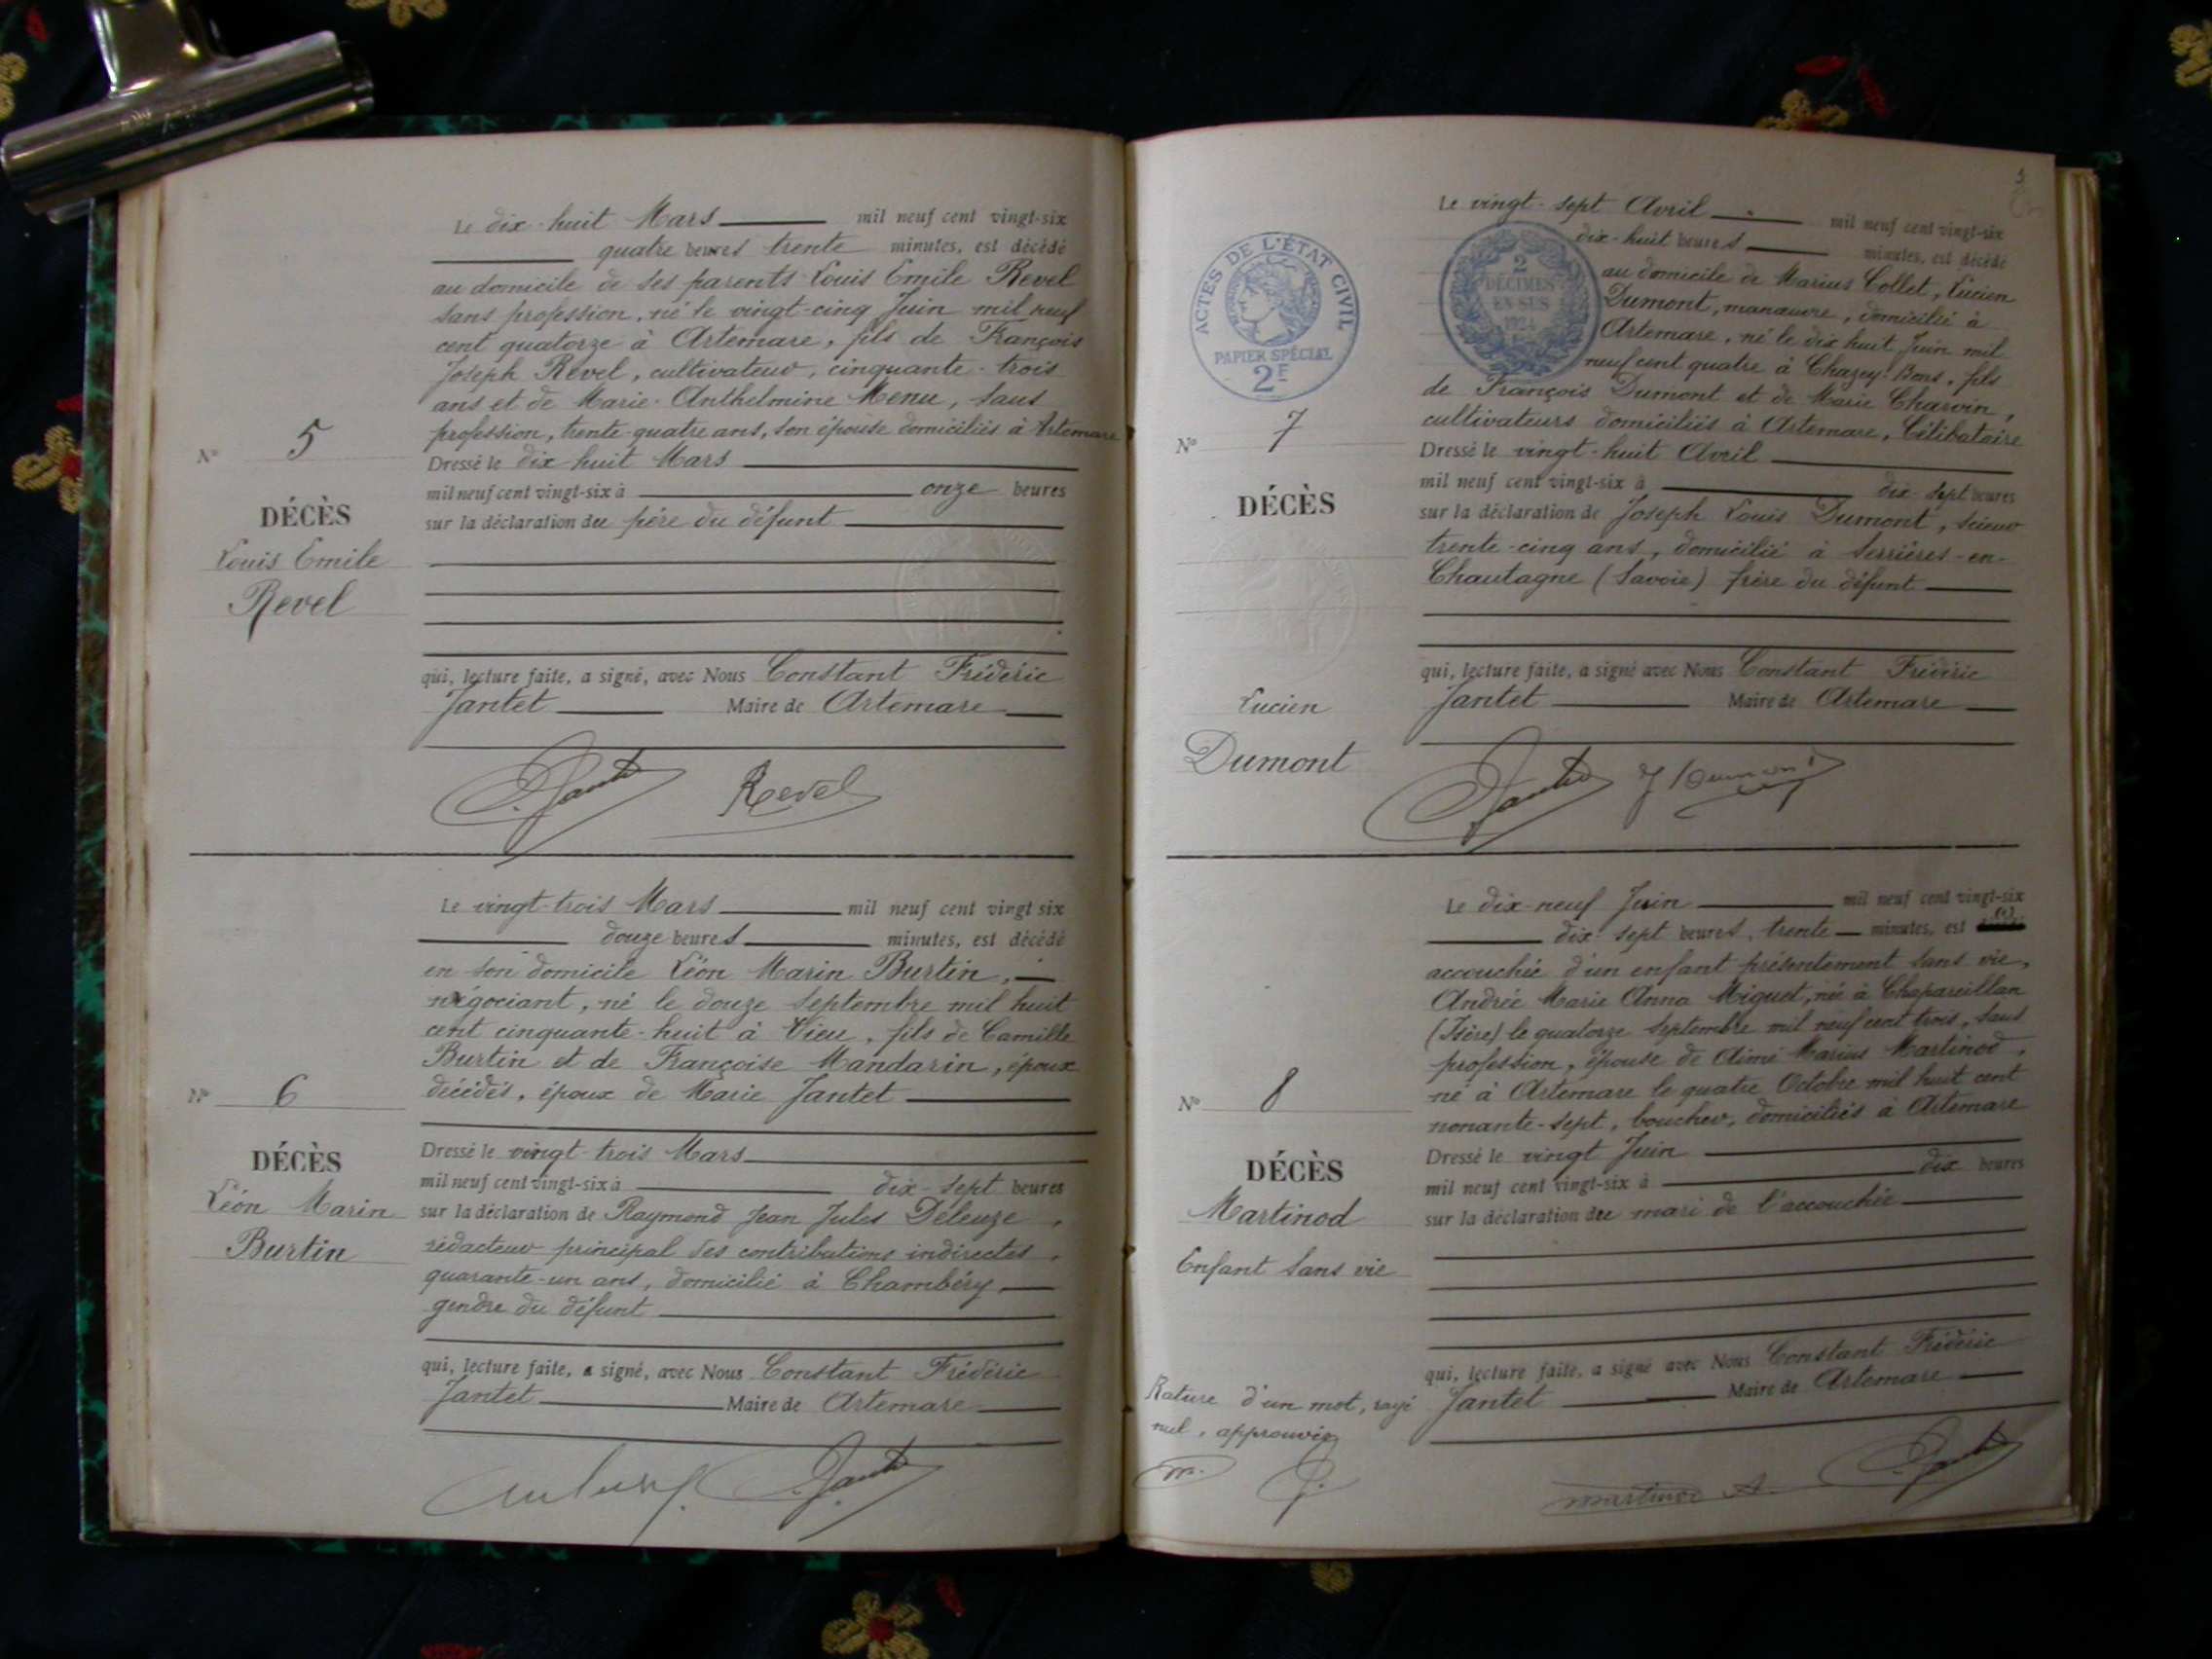 Le dix-huit Mars mil neuf cent vingt-six
quatre heures trente minutes, est décédé
au domicile de ses parents Louis Emile Revel
sans profession, né le vingt-cinq Juin mil neuf
cent quatorze à Artemare, fils de François
Joseph Revel, cultivateur, cinquante-trois
ans et de Marie-Anthelmine Menu, sans
profession, trente-quatre ans, son épouse domiciliés à Artemare
N° 5
Dressé le dix huit Mars
mil neuf cent vingt-six à onze heures
DÉCÈS
sur la déclaration du père du défunt
Louis Emile
Revel
qui, lecture faite, a signé, avec Nous Constant Fréderic
Jantet Maire de Artemare
C. Jantet Revel
Le vingt-trois Mars mil neuf cent vingt six
douze heures minutes, est décédé
en son domicile Léon Marin Burtin,
négociant, né le douze Septembre mil huit
cent cinquante-huit à Vieu, fils de Camille
Burtin et de Françoise Mandarin, époux
décédés, époux de Marie Jantet
N° 6
DÉCÈS
Dressé le vingt-trois Mars
mil neuf cent vingt-six à dix-sept heures
Léon Marin
sur la déclaration de Raymond Jean Jules Deleuze,
Burtin
rédacteur principal des contributions indirectes,
quarante-un ans, domicilié à Chambéry
gendre du défunt
qui, lecture faite, a signé, avec Nous Constant Fréderic
Jantet Maire de Artemare
C. Jantet
Le vingt-sept Avril mil neuf cent vingt-six
dix-huit heures minutes, est décédé
ACTES DE L'ÉTAT CIVIL
PAPIER SPÉCIAL
2F
2
DÉCIMES
EN SUS
1924
au domicile de Marius Collet, Lucien
Dumont, manœuvre, domicilié à
Artemare, né le dix huit Juin mil
neuf cent quatre à Chazey-Bons, fils
de François Dumont et de Marie Charvin,
cultivateurs domiciliés à Artemare, Célibataire
N° 7
Dressé le vingt-huit Avril
mil neuf cent vingt-six à dix-sept heures
DÉCÈS
sur la déclaration de Joseph Louis Dumont, scieur
trente-cinq ans, domicilié à Serrières-en-
Chautagne (Savoie) frère du défunt
qui, lecture faite, a signé avec Nous Constant Fréderic
Lucien
Jantet Maire de Artemare
Dumont
C. Jantet J Dumont
Le dix-neuf Juin mil neuf cent vingt-six
dix-sept heures, trente minutes, est
accouchée d'un enfant présentement sans vie,
Andrée Marie Anna Miguet, née à Chapareillan
(Isère) le quatorze Septembre mil neuf cent trois, sans
profession, épouse de Aimé Marius Martinod,
né à Artemare le quatre Octobre mil huit cent
nonante-sept, boucher, domiciliés à Artemare
N° 8
Dressé le vingt Juin
mil neuf cent vingt-six à dix heures
DÉCÈS
sur la déclaration du mari de l'accouchée
Martinod
Enfant sans vie
qui, lecture faite, a signé avec Nous Constant Fréderic
Jantet Maire de Artemare
Rature d'un mot, rayé
nul, approuvée
m. J.
Martinod A. C. Jantet